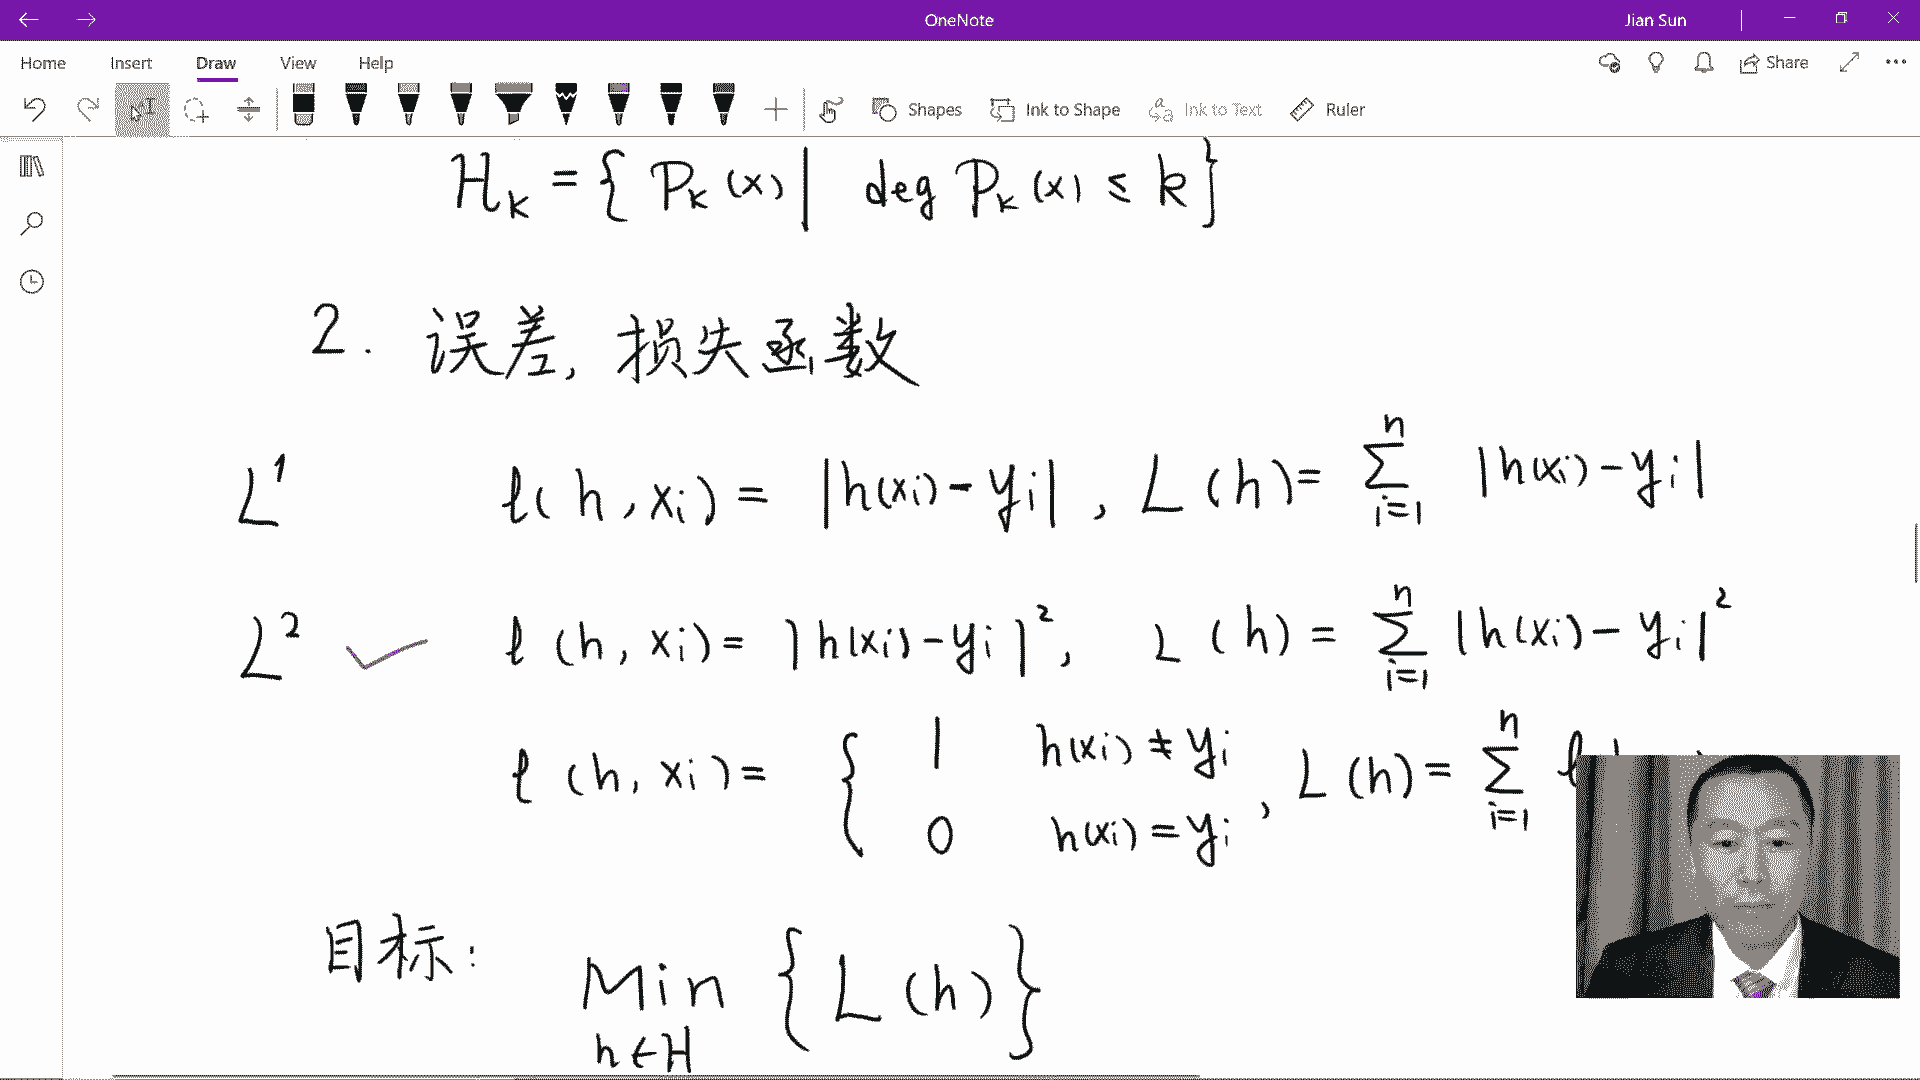 OneNote
Jian Sun
Home Insert Draw View Help
Share
Shapes Ink to Shape Ink to Text Ruler
H_k = { P_k (x) | deg P_k (x) ≤ k }
2. 误差, 损失函数
L^1 ℓ( h , x_i ) = |h(x_i) - y_i| , L (h) = ∑_{i=1}^{n} |h(x_i) - y_i|
L^2 ✓ ℓ (h, x_i) = |h(x_i) - y_i|^2 , L (h) = ∑_{i=1}^{n} |h(x_i) - y_i|^2
ℓ (h, x_i) = { 1 h(x_i) ≠ y_i
0 h(x_i) = y_i , L (h) = ∑_{i=1}^{n} ℓ
目标: Min_{h∈H} { L (h) }